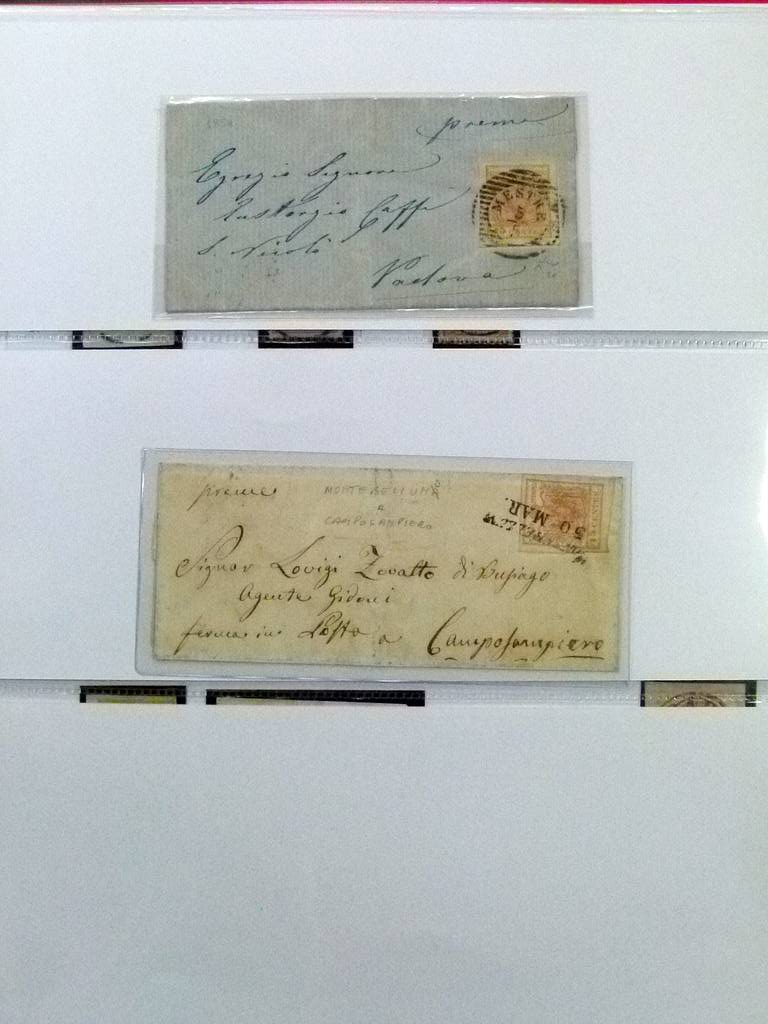 preme
Egregio Signore
Eustorgio Caffi
S. Nicolò
Padova
MESTRE
5
preme
MONTEBELLUNA
A
CAMPOSAMPIERO
30 MAR.
15 CENTES
Signor Lovigi Zovatto di Busiago
Agente Gidoni
ferma in Posta a Camposampiero